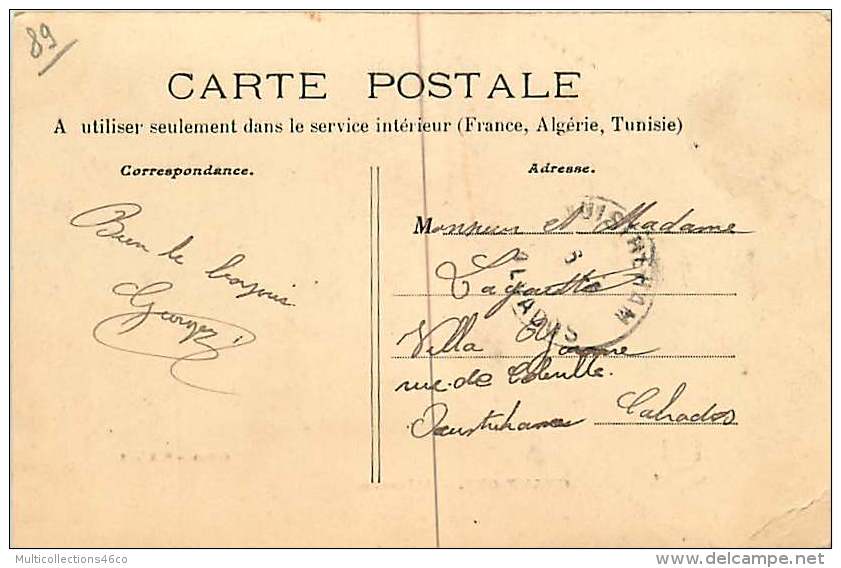 89
CARTE POSTALE
A utiliser seulement dans le service intérieur (France, Algérie, Tunisie)
Correspondance.
Adresse.
Bien le bonjour
Georges
Monsieur et Madame
Villa Yvonne
rue de Colleville
Calvados
OUISTREHAM
CALVADOS
Multicollections46co
www.delcampe.net